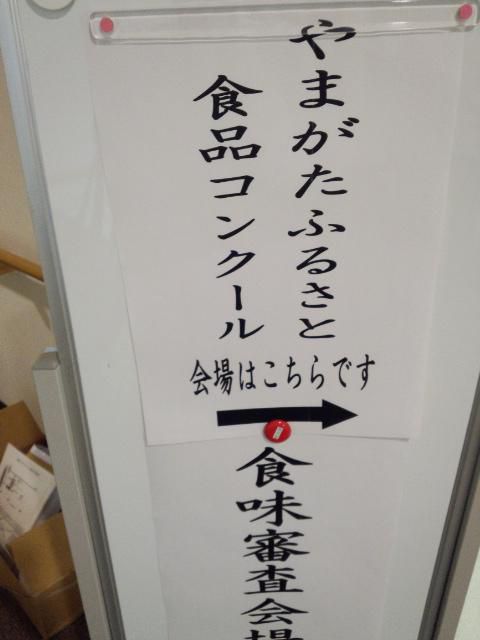 やまがたふるさと
食品コンクール
会場はこちらです
食味審査会場